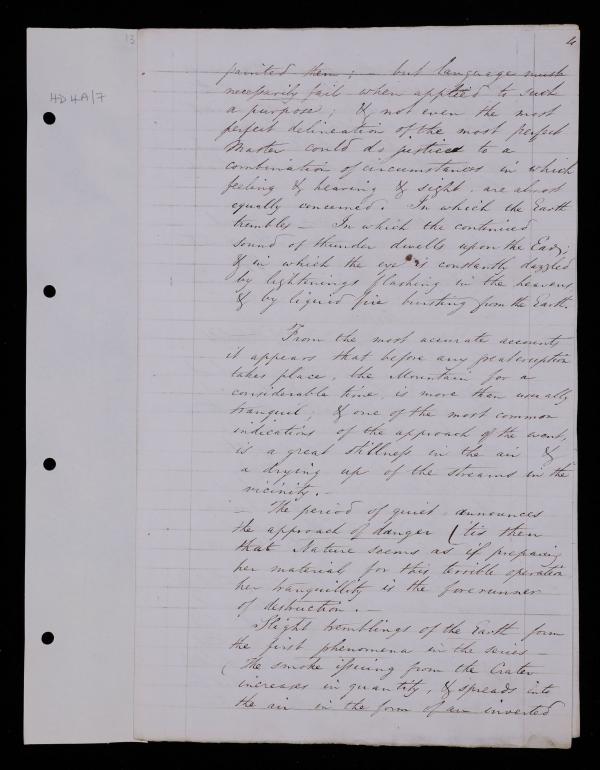 13
4
HD4A/7
painted them; – but language must
necessarily fail when applied to such
a purpose; & not even the most
perfect delineation of the most perfect
Master could do justice to a
combination of circumstances in which
feeling & hearing & sight are almost
equally concerned. In which the Earth
trembles – In which the continued
sound of thunder dwells upon the Ear;
& in which the eye is constantly dazzled
by lightnings flashing in the heavens
& by liquid fire bursting from the Earth.
– From the most accurate accounts
it appears that before any great eruption
takes place, the Mountain for a
considerable time is more than usually
tranquil; & one of the most common
indications of the approach of the event,
is a great stillness in the air &
a drying up of the streams in the
vicinity. –
– The period of quiet announces
the approach of danger ('tis then
that Nature seems as if preparing
her material for this terrible operation
her tranquillity is the forerunner
of destruction. –
Slight tremblings of the Earth form
the first phenomena in the series –
(The smoke issuing from the Crater
increases in quantity, & spreads into
the air in the form of an inverted